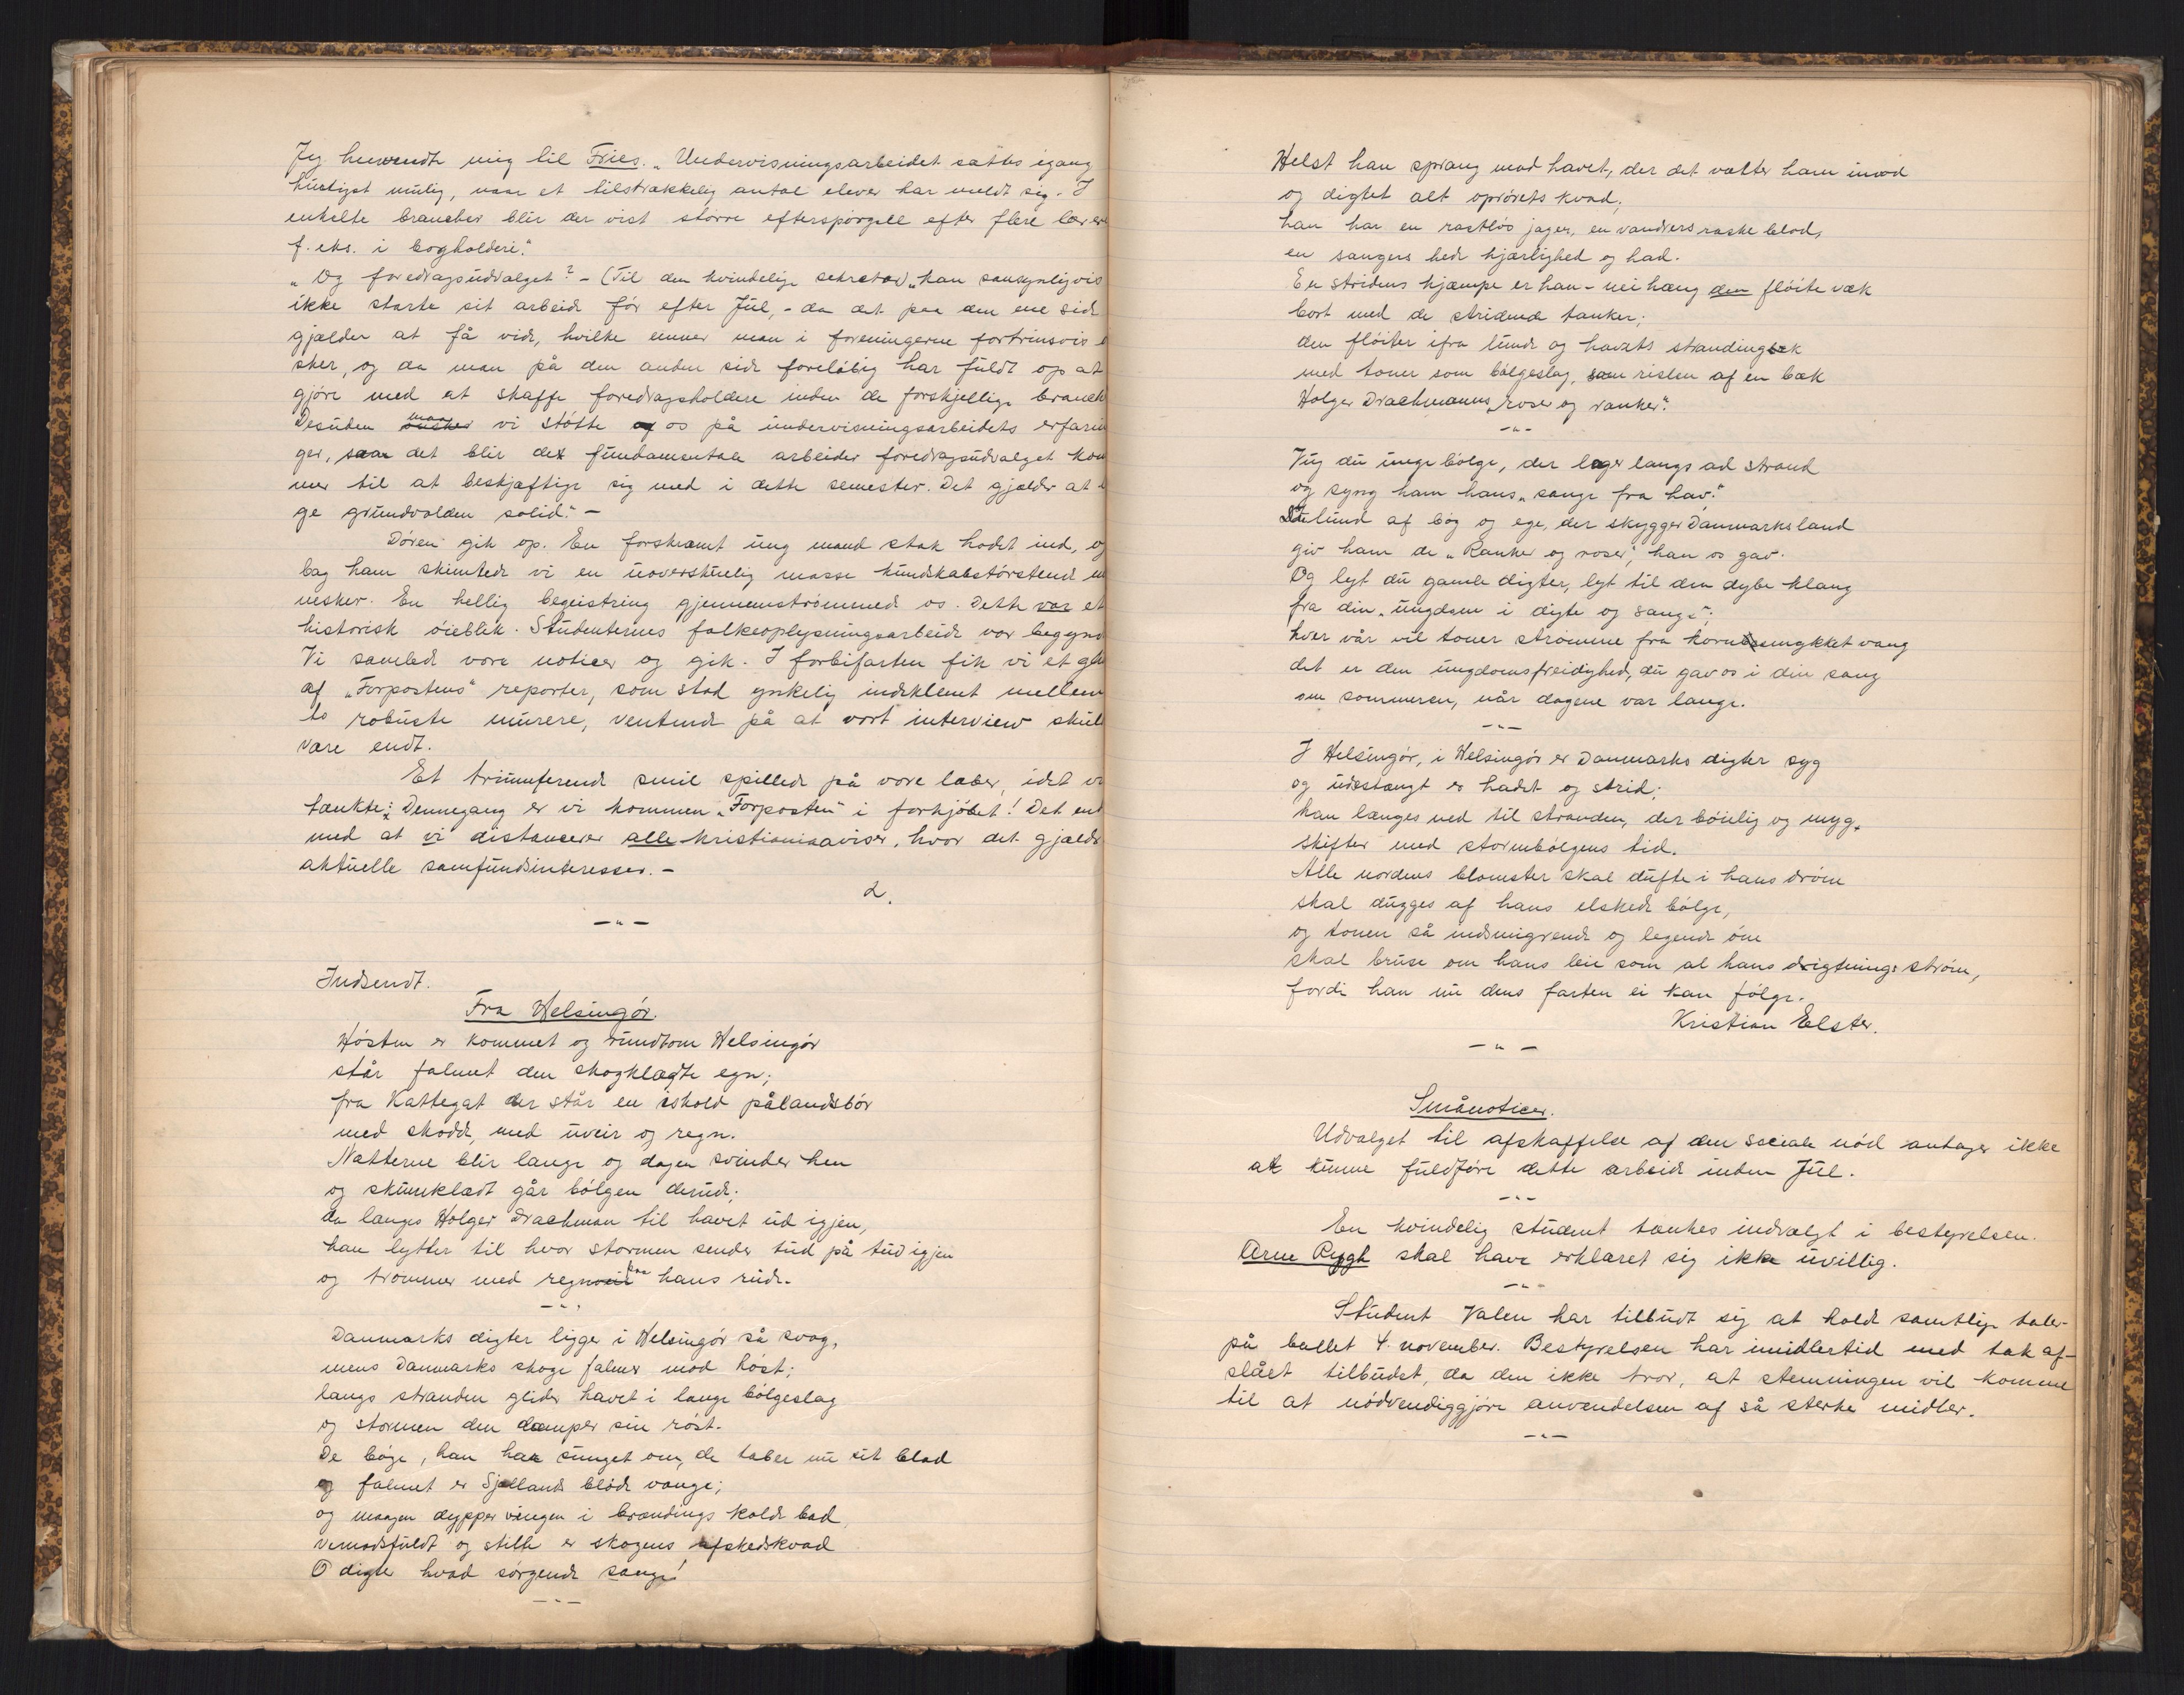 Jeg henvendte mig til Fries. „Undervisningsarbeidet sættes igang
hurtigst mulig, naar et tilstrækkelig antal elever har meldt sig. I
enkelte brancher blir der vist större efterspörgsel efter flere lærere
f. eks. i bogholderi."
„Og foredragsudvalget? – (Til den kvindelige sekretær) „kan sansynligvis
ikke starte sit arbeide för efter Jul, – da det paa den ene side
gjælder at få vide, hvilke emner man i foreningerne fortrinsvis
sker, og da man på den anden side foreløbig har fuldt op at
gjöre med at skaffe foredragsholdere inden de forskjellige branch
Desuden maa vi stötte os på undervisningsarbeidets erfarin
ger, saa det blir det fundamentale arbeider foredragsudvalget kom
mer til at beskjæftige sig med i dette semester. Det gjælder at
ge grundvolden solid." –
Dören gik op. En forskræmt ung mand stak hodet ind, og
bag ham skimtede vi en uoverskuelig masse kundskabstörstende
nesker. En hellig begeistring gjennemströmmede os. Dette var et
historisk öieblik. Studenternes folkeoplysningsarbeide var begynd
Vi samlede vore noticer og gik. I forbifarten fik vi et glim
af „Forpostens" reporter, som stod ynkelig indeklemt mellem
to robuste murere, ventende på at vort interview skul
være endt.
Et triumferende smil spillede på vore læber, idet vi
tænkte: Dennegang er vi kommen „Forposten" i forkjöbet! Det end
med at vi distancerer alle kristianiaaviser, hvor det gjælder
aktuelle samfundsinteresser. –
2.
– " –
Indsendt.
Fra Helsingör.
Hösten er kommet og rundtom Helsingör
står falmet den skogklædte egn;
fra Kattegat der står en iskold pålandsbör
med skodde, med uveir og regn.
Nætterne blir lange og dagen svinder hen
og skumklædt går bölgen derude;
da længes Holger Drachman til havet ud igjen,
han lytter til hvor stormen sender tud på tud igjen
og trommer med regn paa hans rude.
– " –
Danmarks digter ligger i Helsingör så svag,
mens Danmarks skoge falmer mod höst;
langs stranden glider havet i lange bölgeslag
og stormen den dæmper sin röst.
De böge, han har sunget om, de taber nu sit blad
og falmet er Sjællands blöde vange;
og maagen dypper vingen i brændings kolde bad,
vemodsfuldt og stille er skogens afskedskvad
O digter hvad sörgende sange!
– " –
Helst han sprang mod havet, der det vælter ham imod
og digtet alt oprörets kvad;
han har en rastlös jager, en vandrers raske blod,
en sangers hede kjærlighed og had.
En stridens kjæmpe er han – nei hæng den flöite væk
bort med de stridende tanker;
den flöiter ifra lunde og havets strandingsvæk
med toner som bölgeslag, som rislen af en bæk
Holger Drachmanns „roser og ranker".
– " –
Vug du unge bölge, der leger langs ad strand
og syng ham hans „sange fra hav".
Du lund af bög og ege, der skygger Danmarks land
giv ham de „Ranker og roser", han os gav.
Og lyt du gamle digter, lyt til den dybe klang
fra din „ungdom i digte og sange";
hver vår vil toner strömme fra kornsmykket vang
det er den ungdomsfreidighed, du gav os i din sang
om sommeren, når dagene var lange.
– " –
I Helsingör, i Helsingör er Danmarks digter syg
og udestængt er hadet og strid;
han længes ned til stranden, der böielig og myg,
skifter med stormbölgens tid.
Alle nordens blomster skal dufte i hans dröm
skal dugges af hans elskede bölge,
og tonen så indsmigrende og legende öm
skal bruse om hans leie som al hans digtnings ström,
fordi han nu dens farten ei kan fölge.
Kristian Elster.
– " –
Smånoticer.
Udvalget til afskaffelse af den sociale nöd antager ikke
at kunne fuldföre dette arbeide inden Jul.
– " –
En kvindelig student tænkes indvalgt i bestyrelsen.
Arne Rygh skal have erklæret sig ikke uvillig.
– " –
Student Valen har tilbudt sig at holde samtlige taler
på ballet 4. november. Bestyrelsen har imidlertid med tak af-
slået tilbudet, da den ikke tror, at stemningen vil komme
til at nödvendiggjöre anvendelsen af så sterke midler.
– " –